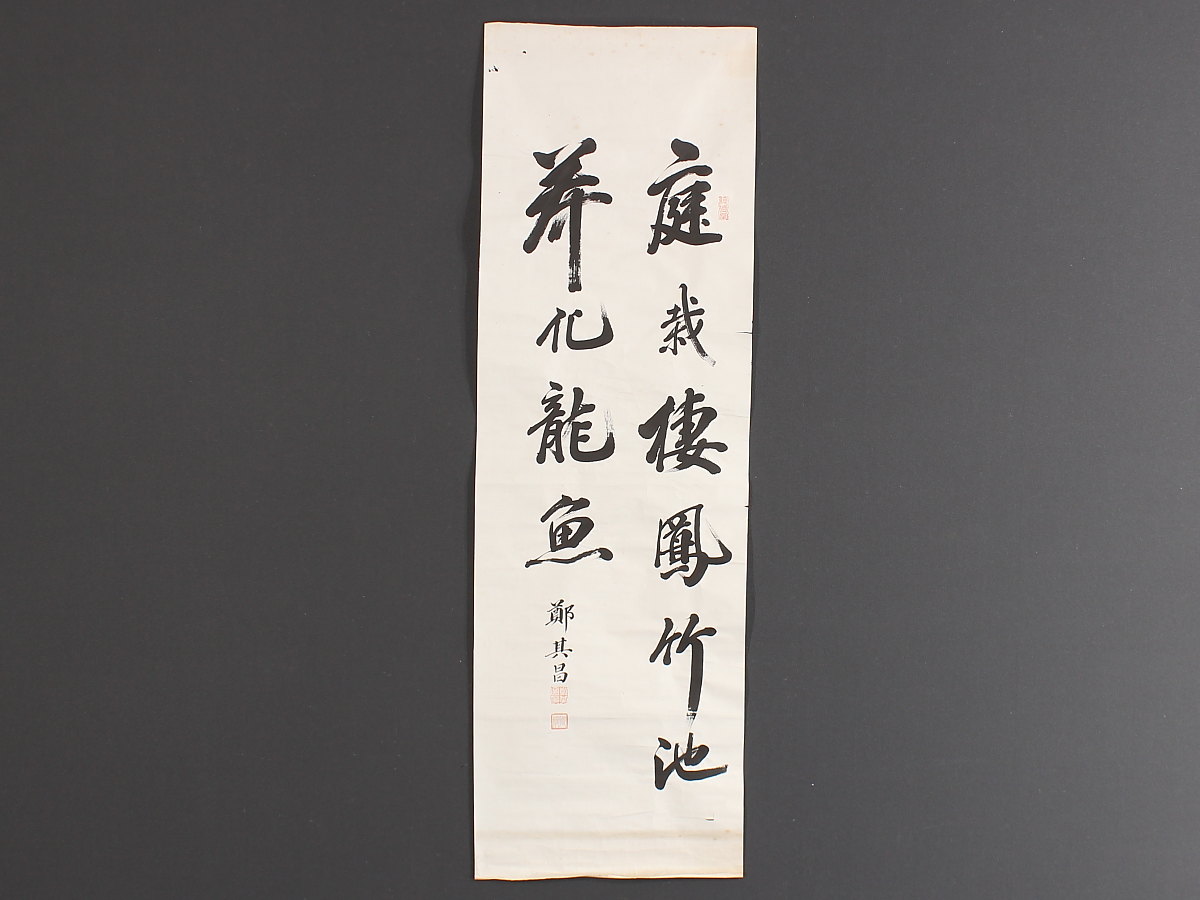 庭栽棲鳳竹池
养化龍魚
鄭其昌